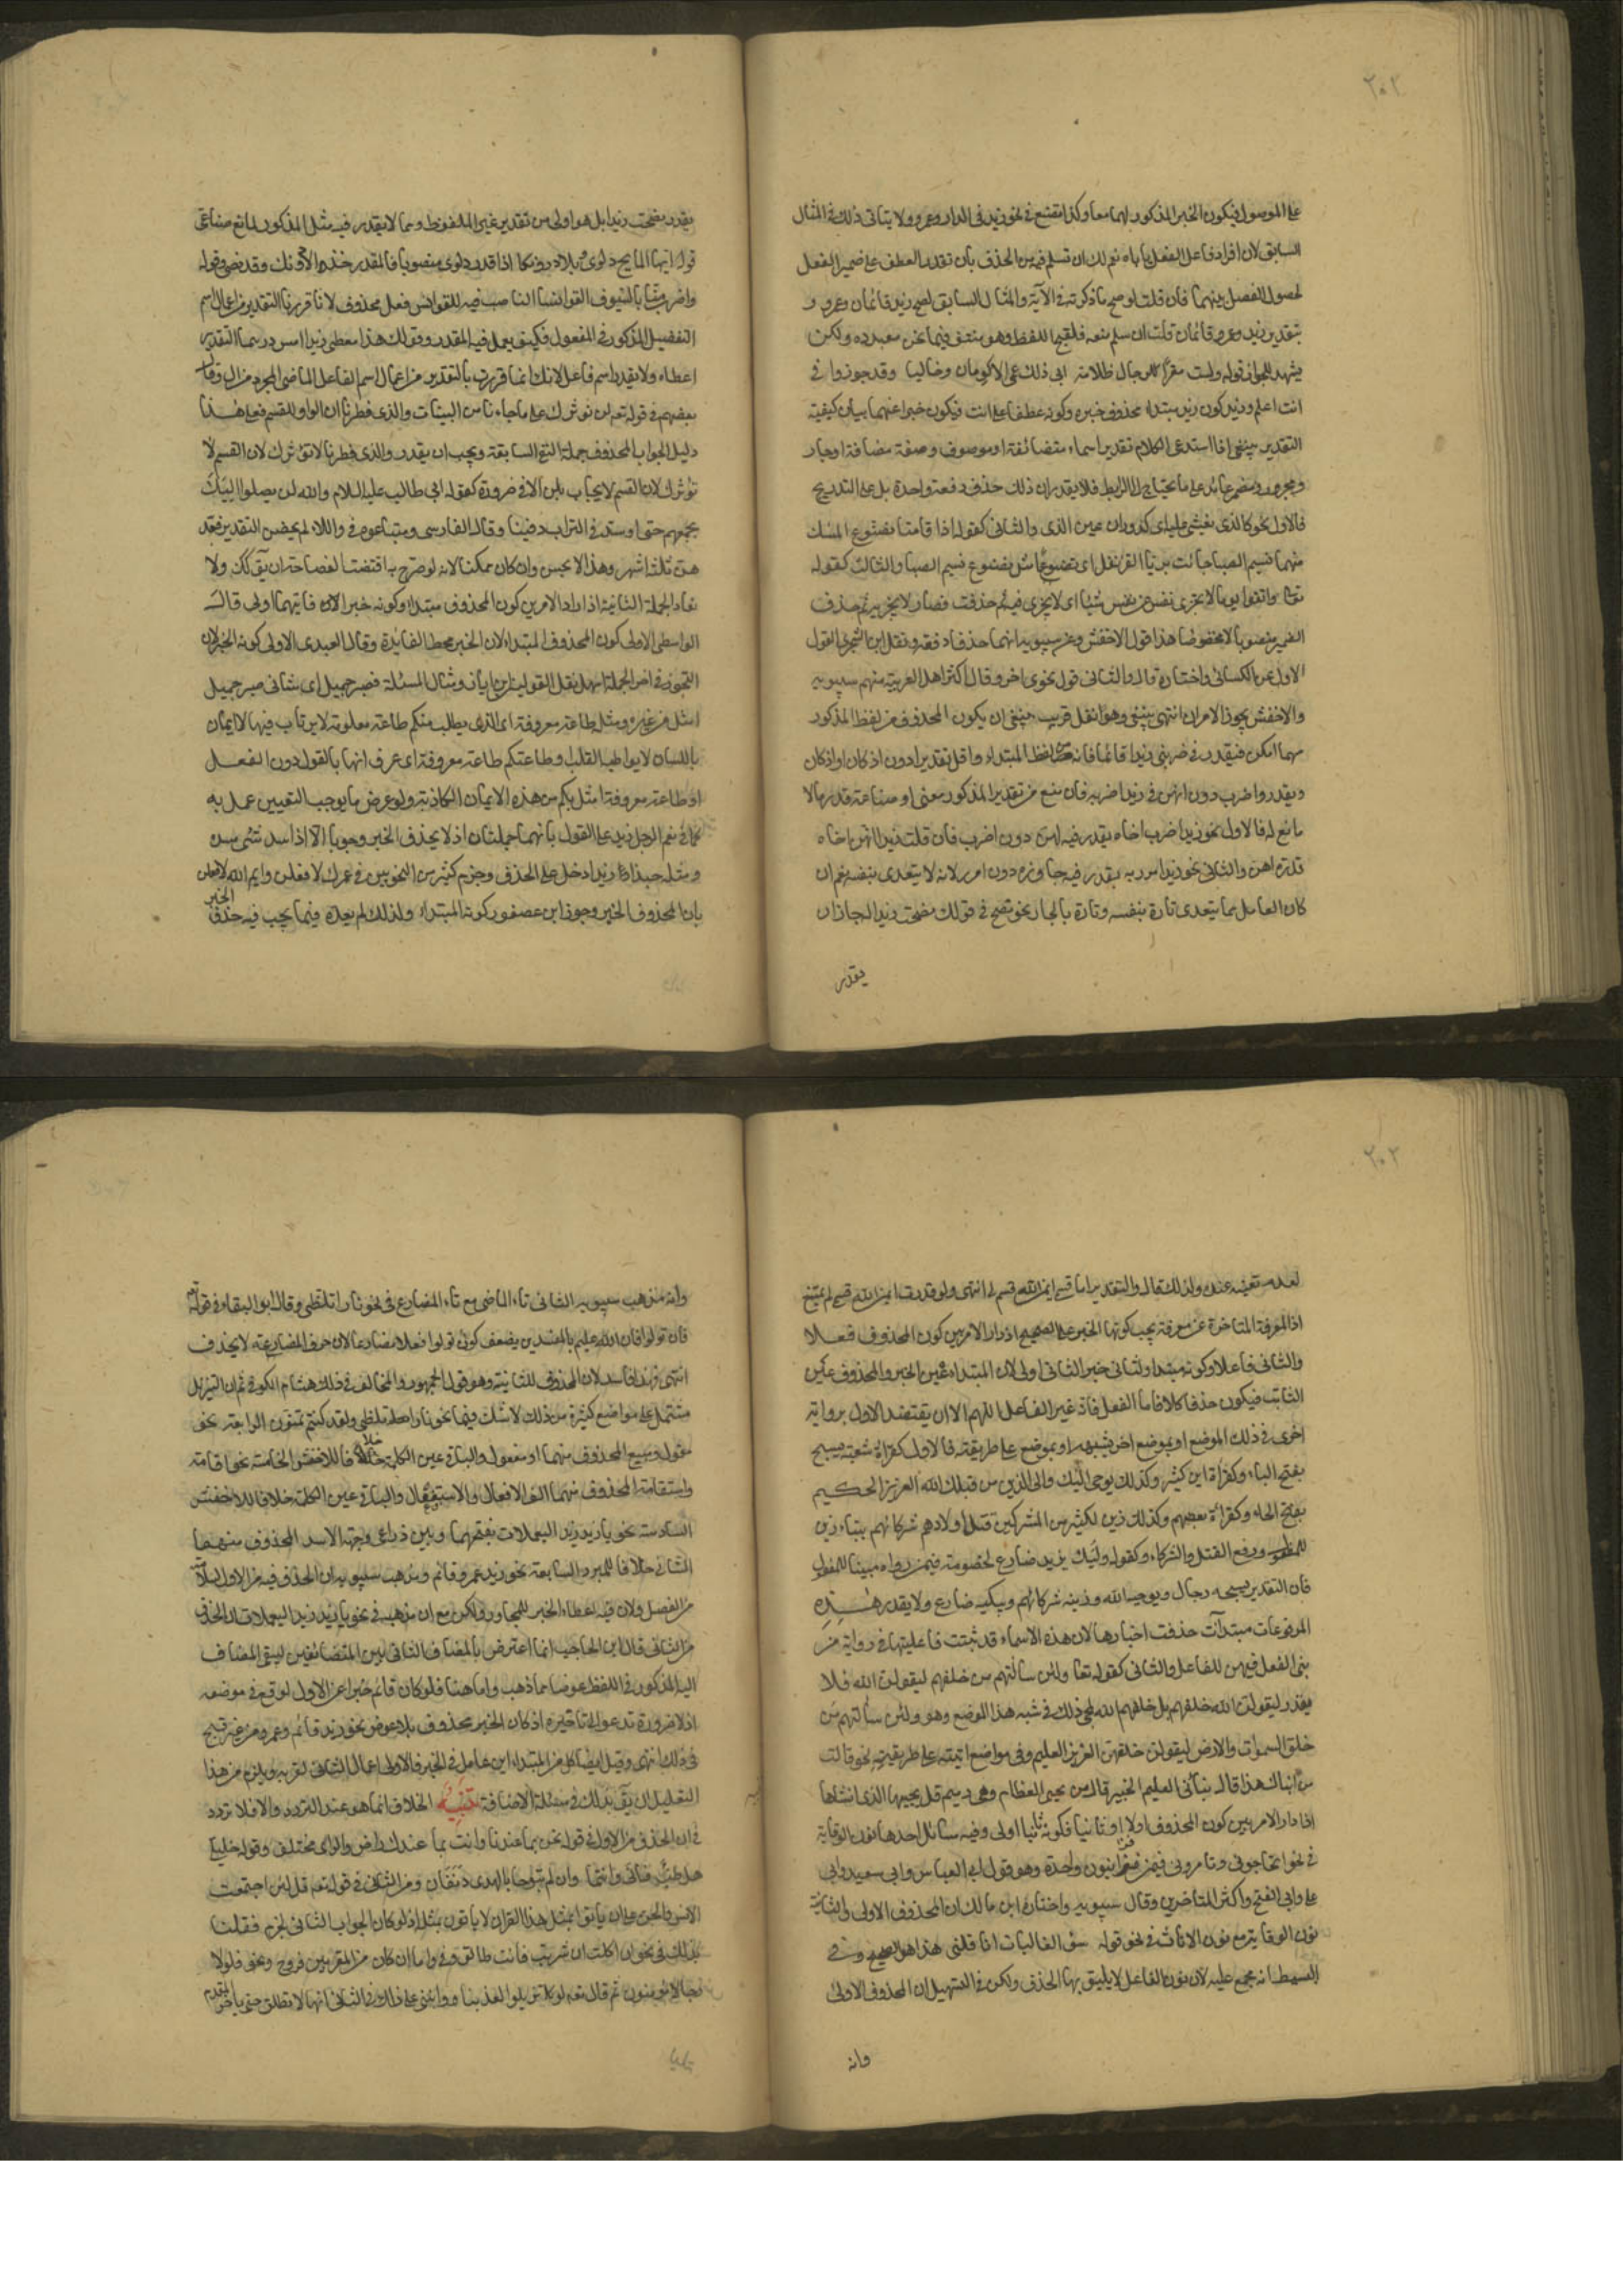 ٢٠٢
على الموصول فيكون الخبر المذكور لهما معا وكذا تمتنع في نحو زيد في الدار وعمرو ولا يتاتى ذلك في المثال
السابق لان افراد فاعل الفعل ياباه نعم لك ان تسلم فيه من الحذف بان تقدر العطف على ضمير الفعل
لحصول الفصل بينهما فان قلت لو صح ما ذكرته في الآية والمثال السابق لصح زيد قائمان وعمرو
بتقدير زيد وعمرو قائمان قلت ان سلم منعه فلقبح اللفظ وهو منتف فيما نحن بصدده ولكن
يشهد للجواز قوله ولست مقرا للرجال ظلامة ابى ذلك عمى الاكرمان وخاليا وقد جوزوا في
انت اعلم وزيد كون زيد مبتدا محذوف خبره وكونه عطفا على انت فيكون خبرا عنهما بيان كيفية
التقدير ينبغى اذا استدعى الكلام تقدير اسماء متضائفة او موصوف وصفة مضافة او جار
ومجرور ومضمر عائد على ما يحتاج الى الرابط فلا يقدر ان ذلك حذف دفعة واحدة بل على التدريج
فالاول نحو كالذى يغشى عليه اى كدوران عين الذى والثانى كقوله اذا قامتا يضوع المسك
منهما نسيم الصبا جائت بريا القرنفل اى تضوعا مثل تضوع نسيم الصبا والثالث كقوله
تعا واتقوا يوما لا تجزى نفس عن نفس شيئا اى لا تجزى فيه ثم حذفت فصار لا تجزيه ثم حذف
الضمير منصوبا لا مخفوضا هذا قول الاخفش وعن سيبويه انهما حذفا دفعة ونقل ابن الشجرى القول
الاول عن الكسائى واختاره قال والثانى قول نحوى اخر وقال اكثر اهل العربية منهم سيبويه
والاخفش يجوز الامران انتهى ينبغى وهو نقل قريب ينبغى ان يكون المحذوف من لفظ المذكور
مهما امكن فيقدر في ضربى زيدا قائما فانه من لفظ المبتداء واقل تقديرا دون اذ كان او اذا كان
ويقدر واضرب دون اهن في زيدا اضربه فان منع من تقدير المذكور معنى او صناعة قدر ما لا
مانع له فالاول نحو زيدا اضرب اخاه يقدر فيه اهن دون اضرب فان قلت زيدا اهن اخاه
قدرة اهن والثانى نحو زيدا امرر به يقدر فيه جاوزه دون امرر لانه لا يتعدى بنفسه نعم ان
كان العامل مما يتعدى تارة بنفسه وتارة بالجار نحو نصح في قولك نصحت زيدا لجاز ان
يقدر
يقدر نصحت زيدا بل هو اولى من تقدير غير الملفوظ ومما لا يقدر فيه مثل المذكور لمانع صناعى
قوله ايها المايح دلوى دونكا اذا قدر دلوى منصوبا فالمقدر خذ لا دونك وقد مضى وقوله
واضرب منا بالسيوف القوانسا الناصب فيه للقوانس فعل محذوف لانا قررنا التقدير من اعمال اسم
التفضيل المذكور في المفعول فكيف يعمل فيه المقدر وقولك هذا معطى زيدا امس درهما التقدير
اعطاه ولا يقدر اسم فاعل لانك انما قررت بالتقدير من اعمال اسم الفاعل الماضى المجرد من ال وقال
بعضهم في قوله تعه لن نوثرك على ما جاءنا من البينات والذى فطرنا ان الواو للقسم فعلى هذا
دليل الجواب المحذوف جملة النفى السابقة ويجب ان يقدر والذى فطرنا لا نؤثرك لان القسم لا
نؤثرك لان القسم لا يجاب بلن الا في ضرورة كقوله ابى طالب عليه السلام والله لن يصلوا اليك
بجمعهم حتى اوسد في التراب دفينا وقال الفارسى ومتابعوه في واللاء لم يحضن التقدير فعد
هن ثلثة اشهر وهذا لا يحسن وان كان ممكنا لانه لو صرح به اقتضت الفصاحة ان يق كك ولا
تعاد الجملة الثانية اذا دار الامر بين كون المحذوف مبتدا وكونه خبرا لان فايهما اولى قال
الواسطى الاولى كون المحذوف المبتدا لان الخبر محط الفايدة وقال العبدى الاولى كونه الخبر لان
التجوز في اخر الجملة اسهل نقل القولين ابن اياز ومثال المسئلة فصبر جميل اى شانى صبر جميل
امثل من غيره ومثله طاعة معروفة اى الذى يطلب منكم طاعة معلومة لا يرتاب فيها لا ايمان
باللسان لا يواطيه القلب وطاعتكم طاعة معروفة اى عرف انها بالقول دون الفعل
او طاعة معروفة امثل بكم من هذه الايمان الكاذبة ولو عرض ما يوجب التعيين عمل به
كما في نعم الرجل زيد على القول بانهما جملتان اذ لا يحذف الخبر وجوبا الا اذا سد شئ مسده
ومثله حبذا زيد اذا حمل على الحذف وجزم كثير من النحويين في عمرك لافعلن وايم الله لافعلن
بان المحذوف الخبر وجوز ابن عصفور كونه المبتداء ولذلك لم يعده فيما يجب فيه حذف الخبر
٢٠٣
لعدم تعينه عنده ولذلك قال والتقدير اما قسمى ايمن الله او ايمن الله قسم لى انتهى ولو قدرت ايمن الله قسمى لم يمتنع
اذ المعرفة المتاخرة عن معرفة يجب كونها الخبر على الصحيح اذ دار الامر بين كون المحذوف فعلا
والثانى فاعلا وكونه مبتدا والثانى خبرا الثانى اولى لان المبتداء عين الخبر والمحذوف عين
الثابت فيكون حذفا كلا فاما الفعل فانه غير الفاعل اللهم الا ان يعتضد الاول برواية
اخرى في ذلك الموضع او بموضع اخر يشبهه او بموضع على طريقته فالاول كقراءة شعبة يسبح
بفتح الباء وكقراءة ابن كثير وكذلك يوحى اليك والى الذين من قبلك الله العزيز الحكيم
بفتح الحاء وكقراءة بعضهم وكذلك زين لكثير من المشركين قتل اولادهم شركائهم ببناء زين
للمفعول ورفع القتل والشركاء وكقوله وليبك يزيد ضارع لخصومة فيمن رواه مبنيا للمفعول
فان التقدير يسبحه رجال ويوحيه الله وزينه شركائهم ويبكيه ضارع ولا يقدر هذه
المرفوعات مبتدآت حذفت اخبارها لان هذه الاسماء قد ثبتت فاعليتها في رواية من
بنى الفعل فيهن للفاعل والثانى كقوله تعا ولئن سالتهم من خلقهم ليقولن الله فلا
يقدر ليقولن الله خلقهم بل خلقهم الله لمجئ ذلك في شبه هذا الموضع وهو ولئن سالتهم من
خلق السموات والارض ليقولن خلقهن العزيز العليم وفى مواضع اتية على طريقته نحو قالت
من انباك هذا قال نبأنى العليم الخبير قال من يحيى العظام وهى رميم قل يحييها الذى انشاها
اذا دار الامر بين كون المحذوف اولا او ثانيا فكونه ثانيا اولى وفيه مسائل احدها نون الوقاية
في نحو اتحاجونى وتامرونى فيمن قرا بنون واحدة وهو قول ابى العباس وابى سعيد وابى
على وابى الفتح واكثر المتاخرين وقال سيبويه واختاره ابن مالك ان المحذوف الاولى والثانية
نون الوقاية مع نون الاناث في نحو قوله يسؤ الفاليات اذا فلينى هذا هو الصحيح وفى
البسيط انه مجمع عليه لان نون الفاعل لا يليق بها الحذف ولكن في التسهيل ان المحذوف الاولى
وانه
وانه مذهب سيبويه الثانى تاء الماضى مع تاء المضارع في نحو نارا تلظى وقال ابو البقاء في قوله تع
فان تولوا فان الله عليم بالمفسدين يضعف كون تولوا فعلا مضارعا لان حرف المضارعة لا يحذف
انتهى وهذا فاسد لان المحذوف الثانية وهو قول الجمهور والمخالف في ذلك هشام الكوفى ثم ان التنزيل
مشتمل على مواضع كثيرة من ذلك لا شك فيها نحو نارا تلظى ولقد كنتم تمنون الرابعة نحو
مقول ومبيع المحذوف منهما واو مفعول والباقى عين الكلمة خلافا للاخفش الخامسة نحو اقامة
واستقامة المحذوف منهما الف الافعال والاستفعال والباقى عين الكلمة خلافا للاخفش
السادسة نحو يا زيد زيد اليعملات بفتحهما وبين ذراعى وجبهة الاسد المحذوف منهما
الثانى خلافا للمبرد السابعة نحو زيد وعمرو قائم ومذهب سيبويه ان الحذف فيه من الاول لسلامته
من الفصل ولان فيه اعطاء الخبر للمجاور ولكن مع ان مذهبه في نحو يا زيد زيد اليعملات ان الحذف
من الثانى قال ابن الحاجب انما اعترض بالمضاف الثانى بين المتضائفين ليبقى المضاف
اليه المذكور في اللفظ عوضا مما ذهب واما هنا فلو كان قائم خبرا عن الاول لوقع في موضعه
اذ لا ضرورة تدعو الى تاخيره اذ كان الخبر يحذف بلا عوض نحو زيد قائم وعمرو من غير قبح
في ذلك انتهى وقيل ايضا كل من المبتداءين عامل في الخبر فالاولى اعمال الثانى لقربه ويلزم من هذا
التعليل ان يق بذلك في مسئلة الاضافة تنبيه الخلاف انما هو عند التردد والا فلا تردد
في ان الحذف من الاول في قوله نحن بما عندنا وانت بما عندك راض والراى مختلف وقوله خليلى
هل طب فانى وانتما وان لم تبوحا بالهدى دنفان ومن الثانى في قوله تعه قل لئن اجتمعت
الانس والجن على ان ياتوا بمثل هذا القران لا ياتون بمثله اذ لو كان الجواب الثانى لجزم فقلنا
بذلك في نحو ان اكلت ان شربت فانت طالق وفى واما ان كان من المقربين فروح ونحو فلولا
رجال مؤمنون ثم قال تعه لو تزيلوا لعذبنا وانبنى على ذلك في الثانى انها لا تطلق حتى يؤخر المقدم